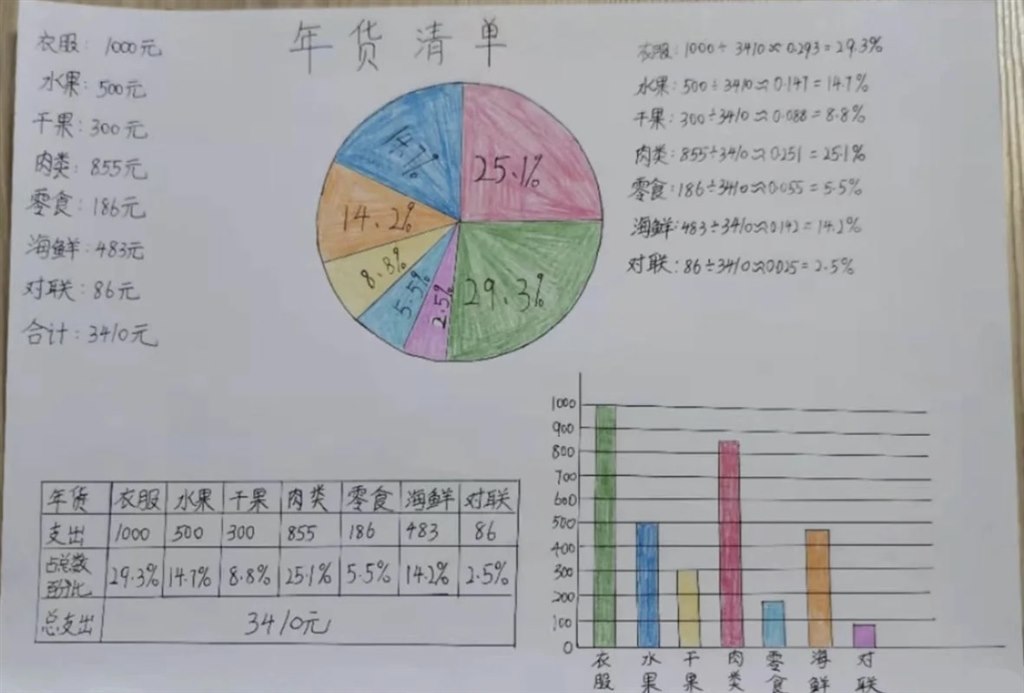 年货清单
衣服：1000元
水果：500元
干果：300元
肉类：855元
零食：186元
海鲜：483元
对联：86元
合计：3410元
14.7%
25.1%
14.2%
8.8%
5.5%
2.5%
29.3%
衣服：1000÷3410≈0.293=29.3%
水果：500÷3410≈0.147=14.7%
干果：300÷3410≈0.088=8.8%
肉类：855÷3410≈0.251=25.1%
零食：186÷3410≈0.055=5.5%
海鲜：483÷3410≈0.142=14.2%
对联：86÷3410≈0.025=2.5%
年货 衣服 水果 干果 肉类 零食 海鲜 对联
支出 1000 500 300 855 186 483 86
占总数
百分比 29.3% 14.7% 8.8% 25.1% 5.5% 14.2% 2.5%
总支出 3410元
1000
900
800
700
600
500
400
300
200
100
0
衣服 水果 干果 肉类 零食 海鲜 对联